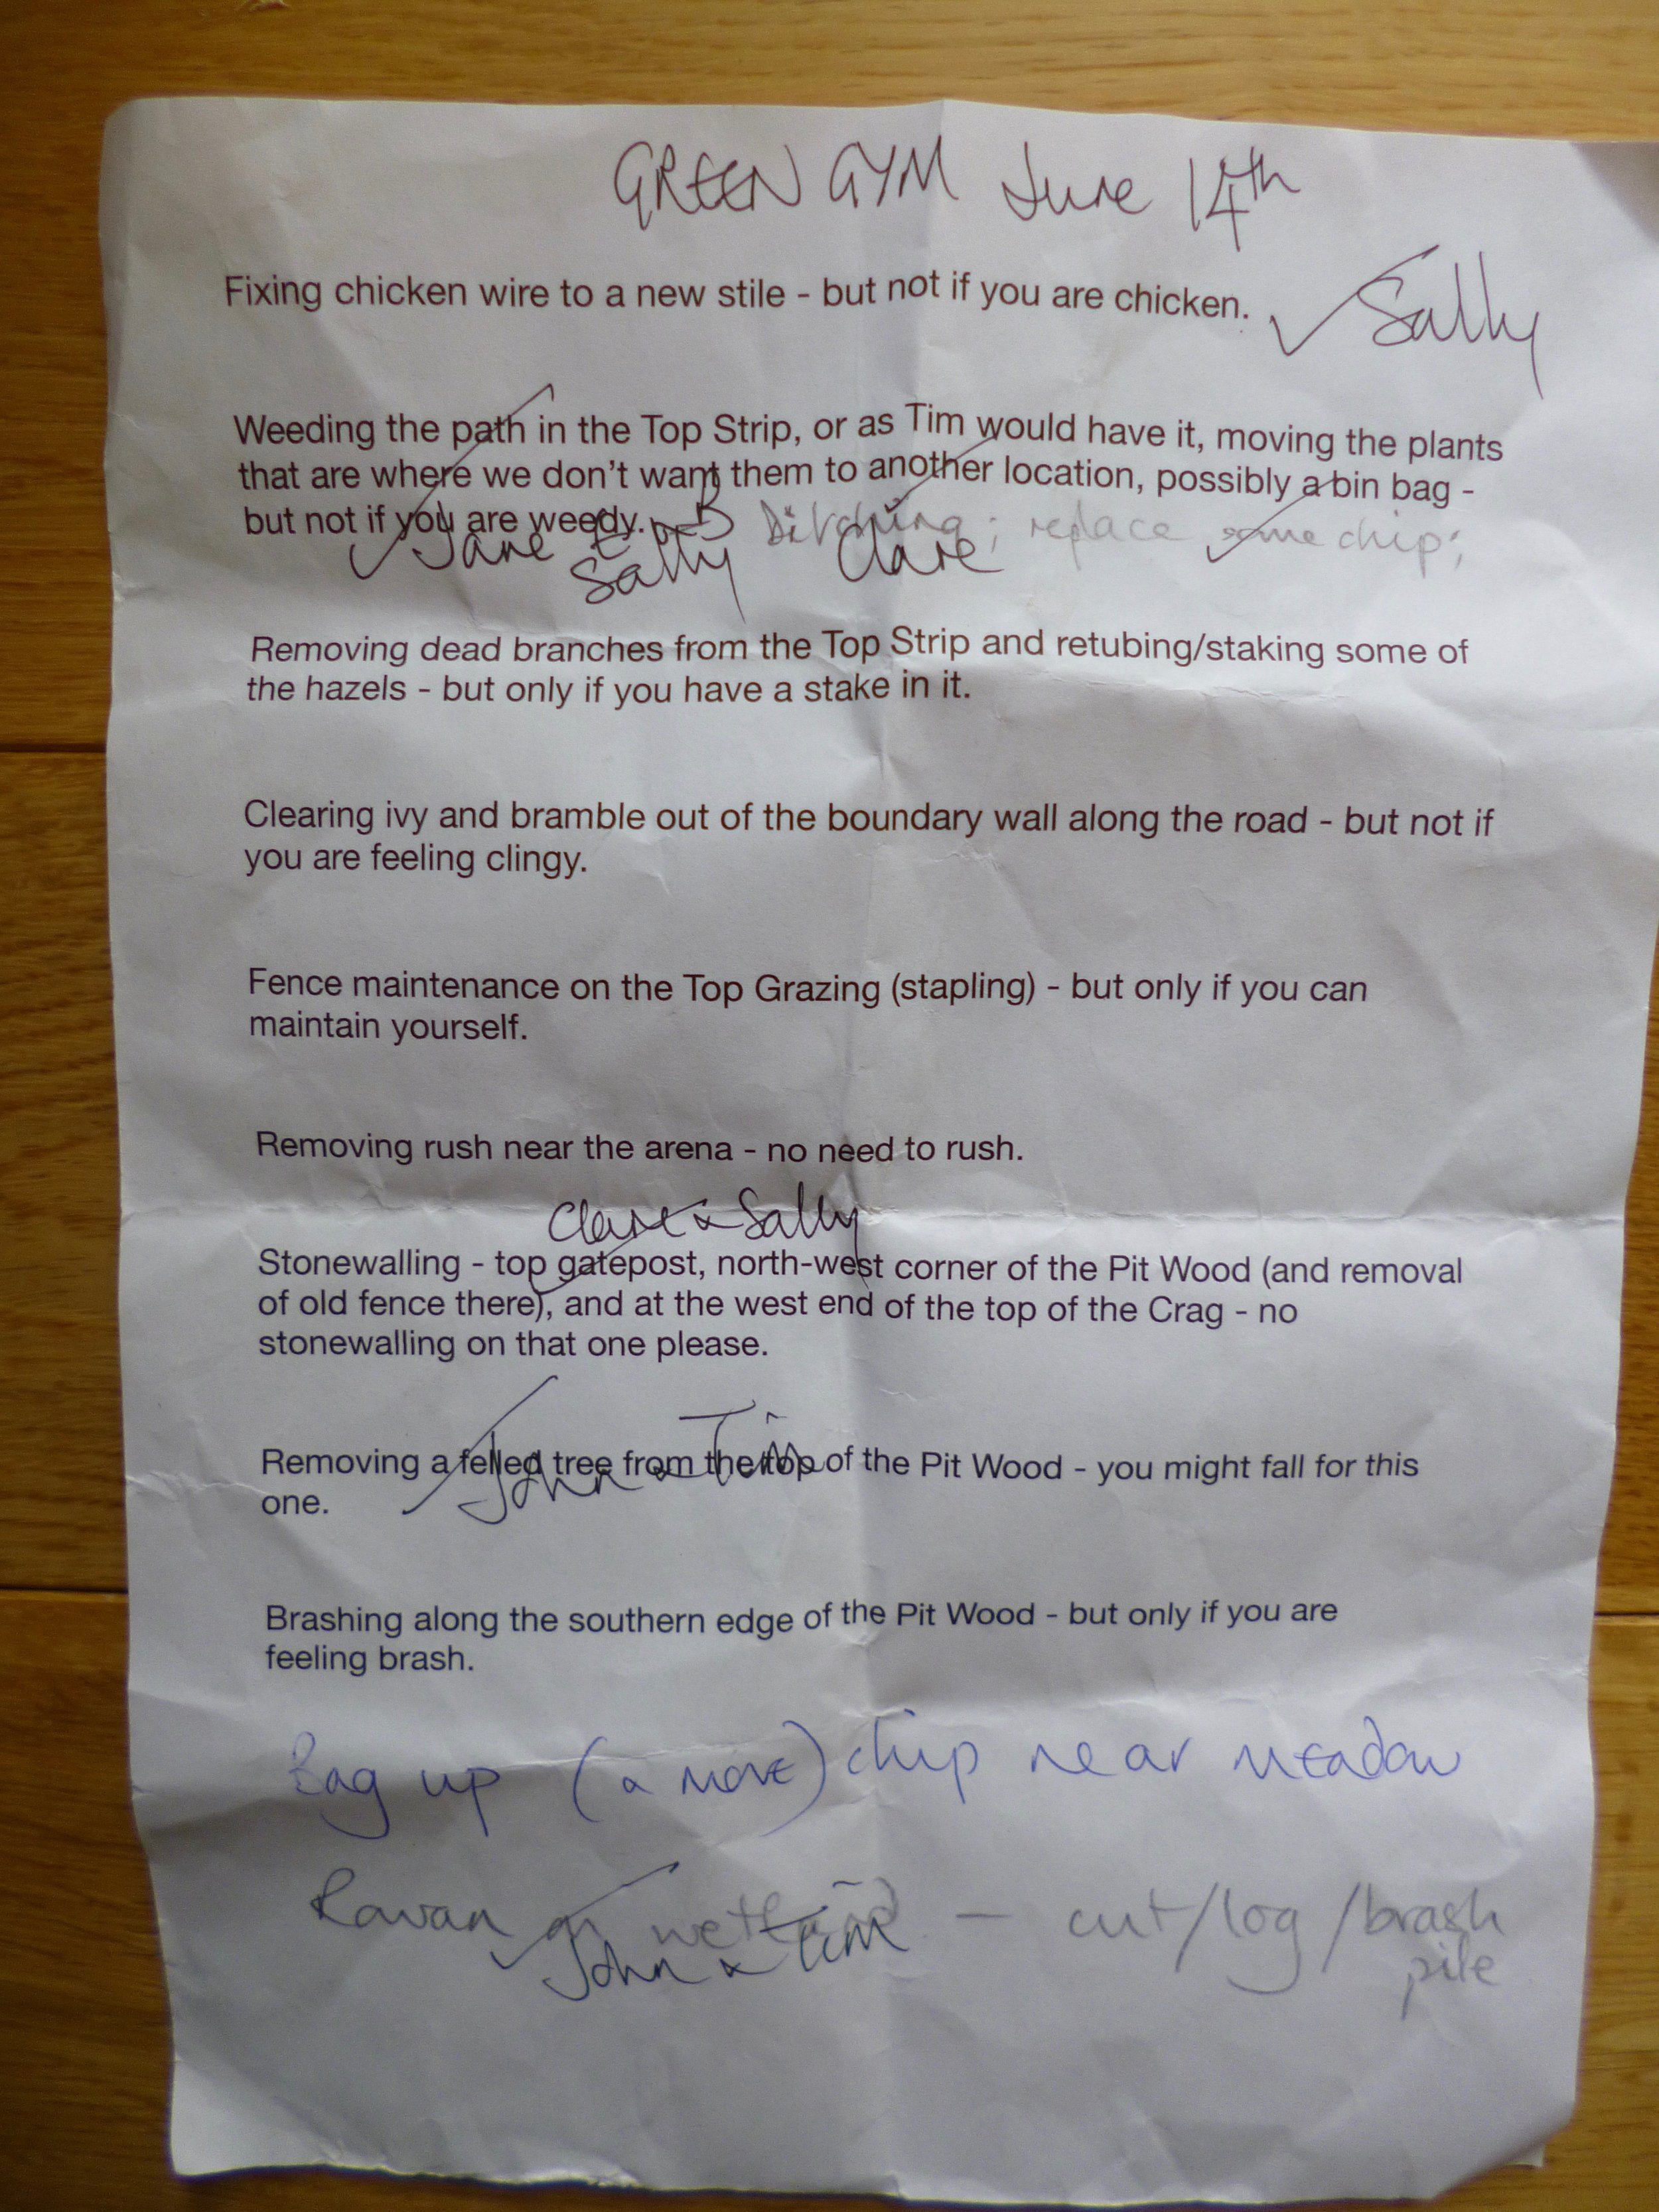 GREEN GYM June 14th
Fixing chicken wire to a new stile - but not if you are chicken. ✓ Sally
Weeding the path in the Top Strip, or as Tim would have it, moving the plants
that are where we don't want them to another location, possibly a bin bag -
but not if you are weedy. Ditching; replace some chip;
✓ Jane Clare
Sally
Removing dead branches from the Top Strip and retubing/staking some of
the hazels - but only if you have a stake in it.
Clearing ivy and bramble out of the boundary wall along the road - but not if
you are feeling clingy.
Fence maintenance on the Top Grazing (stapling) - but only if you can
maintain yourself.
Removing rush near the arena - no need to rush.
Clare & Sally
Stonewalling - top gatepost, north-west corner of the Pit Wood (and removal
of old fence there), and at the west end of the top of the Crag - no
stonewalling on that one please.
Removing a felled tree from the top of the Pit Wood - you might fall for this
one. ✓ John & Tim
Brashing along the southern edge of the Pit Wood - but only if you are
feeling brash.
Bag up (& move) chip near meadow
Rowan on wetland - cut/log/brash
pile
✓ John & Tim